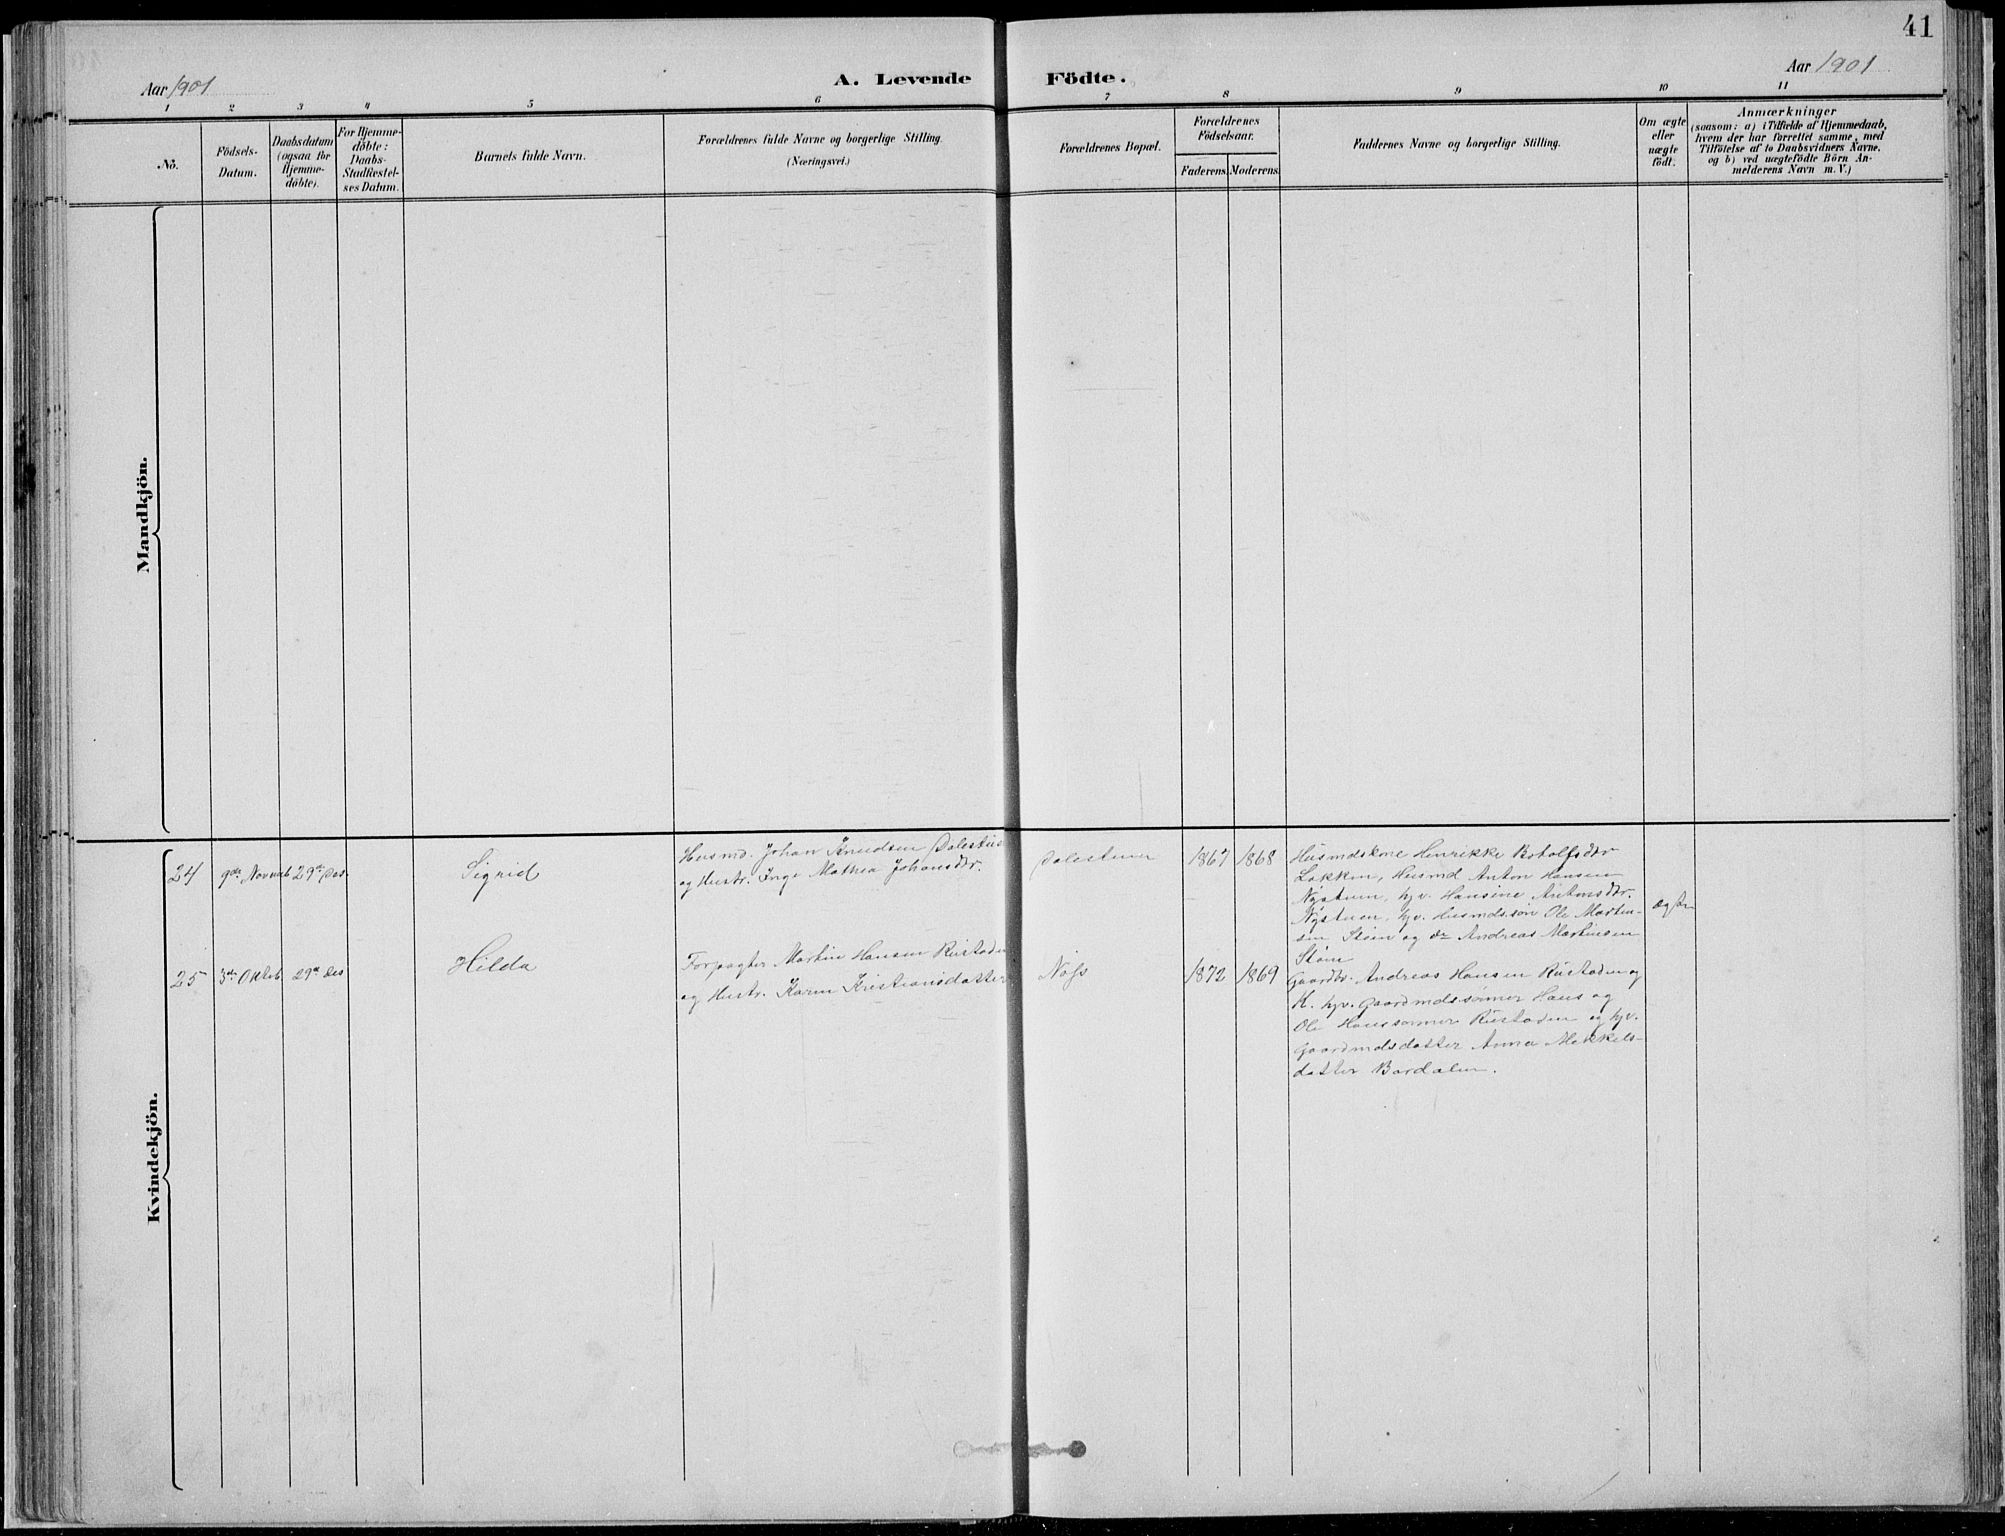 41
Aar 1901
A. Levende Födte.
Aar 1901
1 2 3 4 5 6 7 8 9 10 11
Nô.
Födsels-
Datum.
Daabsdatum
(ogsaa for
Hjemme-
döbte).
For Hjemme-
döbte:
Daabs-
Stadfæstel-
ses Datum.
Barnets fulde Navn.
Forældrenes fulde Navne og borgerlige Stilling.
(Næringsvei.)
Forældrenes Bopæl.
Forældrenes
Födselsaar.
Faderens. Moderens.
Faddernes Navne og borgerlige Stilling.
Om ægte
eller
uægte
födt.
Anmærkninger
(saasom: a) i Tilfælde af Hjemmedaab,
hvem der har forrettet samme, med
Tilföielse af to Daabsvidners Navne,
og b) ved uægtefödte Börn An-
melderens Navn m. V.)
Mandkjön.
Kvindekjön.
24
9de Novemb
29de Des.
Sigrid
Husmd. Johan Knudsen
og Hustr. Inge Mathea Johansdtr.
1867
1868
Husmdskone Henrikke Botolfsdtr
Løkken, Husmd Anton Hansen
Nystuen, hjv. Hansine Antonsdtr.
Nystuen, hjv. Husmdssøn Ole Martin-
sen Støen og do Andreas Martinsen
Støen
Ægte
25
3de Oktob.
29de Des
Hilda
Forpagter Martin Hansen Rustaden
og Hustr. Karen Kristiansdatter
Nøss
1872
1869
Gaardbr. Andreas Hansen Rustaden og
K. hjv. Gaardmdssønner Hans og
Ole Hanssønner Rustaden og hjv.
Gaardmdsdatter Anna Mikkels-
datter Bardalen.